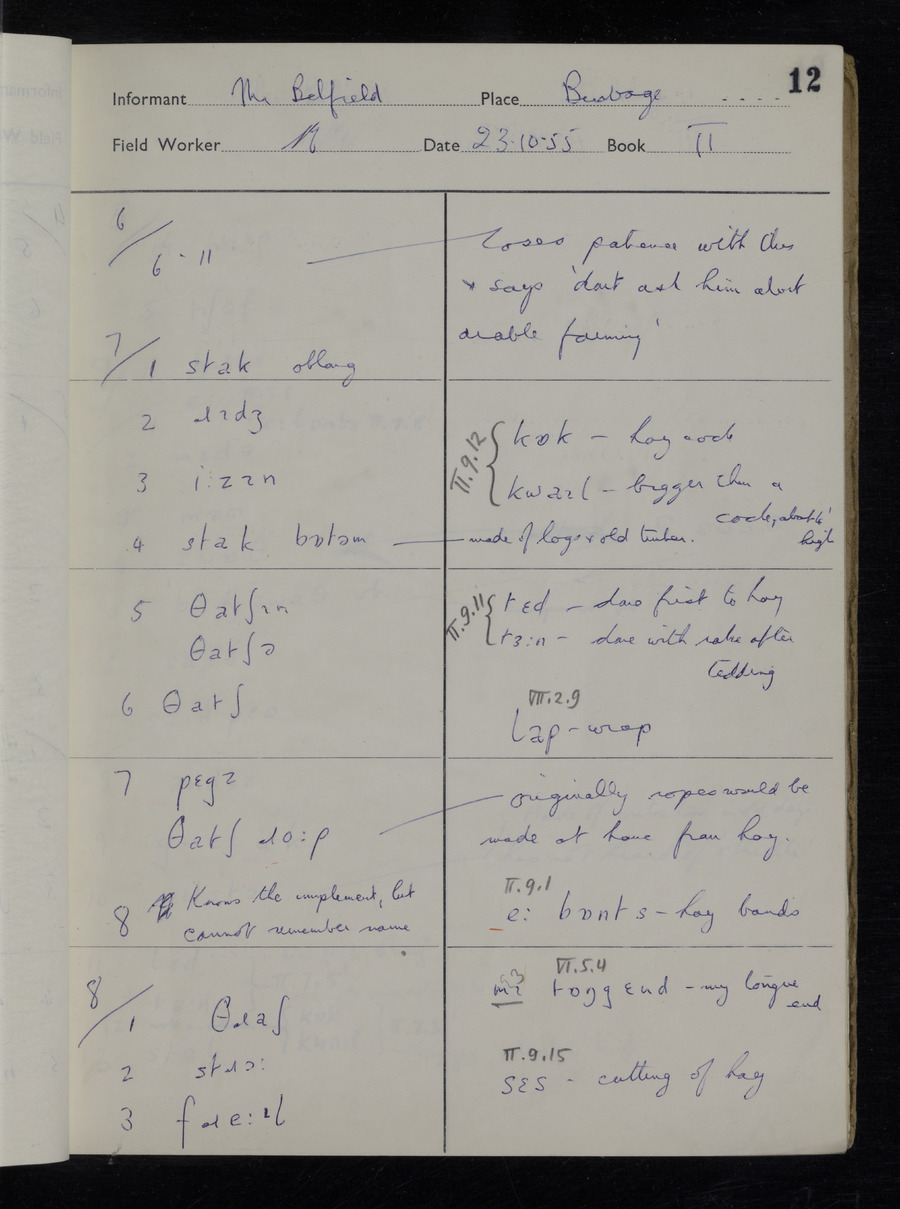 12
Informant Mr Belfield Place Burbage
Field Worker Date 23.10.55 Book II
6/
6.11
loses patience with this
& says 'dont ask him about
arable farming'
7/1 stak oblong
2 ɹɪdʒ
II.9.12
kɒk – hay cock
3 i:zɪn
kwaɪl – bigger than a
cock, about 6' high
4 stak bɒtəm
made of logs & old timber.
5 θatʃɪn
II.9.11
tɛd – done first to hay
θatʃə
tɜ:n – done with rake after
tedding
6 θatʃ
VII.2.9
lap – wrap
7 pɛgz
originally ropes would be
θatʃ ɹo:p
made at home from hay.
8 Knows the implement, but
cannot remember name
II.9.1
e: bɒnts – hay bands
8/1 θɹaʃ
VI.5.4
mɪ tɒŋg ɛnd – my tongue
end
2 stɹɔ:
II.9.15
sɛs – cutting of hay
3 fɹe:ɪl